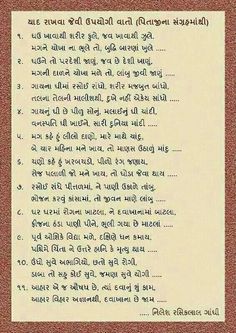 યાદ રાખવા જેવી ઉપયોગી વાતો (પિતાજીના સંગ્રહમાંથી)
૧. ઘઉં ખાવાથી શરીર ફુલે, જવ ખાવાથી ઝુલે.
મગને ચોખા ના ભૂલે તો, બુદ્ધિ બારણાં ખુલે .....
૨. ઘઉંને તો પરદેશી જાણું, જવ છે દેશી ખાણું,
મગની દાળને ચોખા મળે તો, લાંબુ જીવી જાણું .....
૩. ગાયના ઘીમાં રસોઈ રાંધો, શરીર મજબૂત બાંધો,
તલના તેલની માલીશથી, દુઃખે નહીં એકેય સાંધો .....
૪. ગાયનું ઘી છે પીળું સોનું, મલાઈનું ઘી ચાંદી,
વનસ્પતિ ઘી ખાઈને, સારી દુનિયા માંદી .....
૫. મગ કહે હું લીલો દાણો, મારે માથે ચાંદું,
બે ચાર મહિના મને ખાય, તો માણસ ઉઠાડું માંદું .....
૬. ચણો કહે હું ખરબચડો, પીળો રંગ જણાય,
રોજ પલાળી જો મને ખાય, તો ઘોડા જેવા થાય .....
૭. રસોઈ રાંધે પીત્તળમાં, ને પાણી ઉકાળે તાંબું,
ભોજન કરવું કાંસામાં, તો જીવન માણે લાંબું .....
૮. ઘર ઘરમાં રોગના ખાટલા, ને દવાખાનામાં બાટલા,
ફ્રીજના ઠંડા પાણી પીને, ભૂલી ગયા છે માટલાં .....
૯. પૂર્વ ઓશિકે વિદ્યા મળે, દક્ષિણે ધન કમાય,
પશ્ચિમે ચિંતા ને ઉત્તરે હાનિ કે મૃત્યુ થાય .....
૧૦. ઉંધો સુવે અભાગિયો, છતો સુવે રોગી,
ડાબા તો સહુ કોઈ સુવે, જમણા સુવે યોગી .....
૧૧. આહાર એ જ ઔષધ છે, ત્યાં દવાનું શું કામ,
આહાર વિહાર અજ્ઞાનથી, દવાખાના છે જામ .....
..... નિલેશ રસિકલાલ ગાંધી